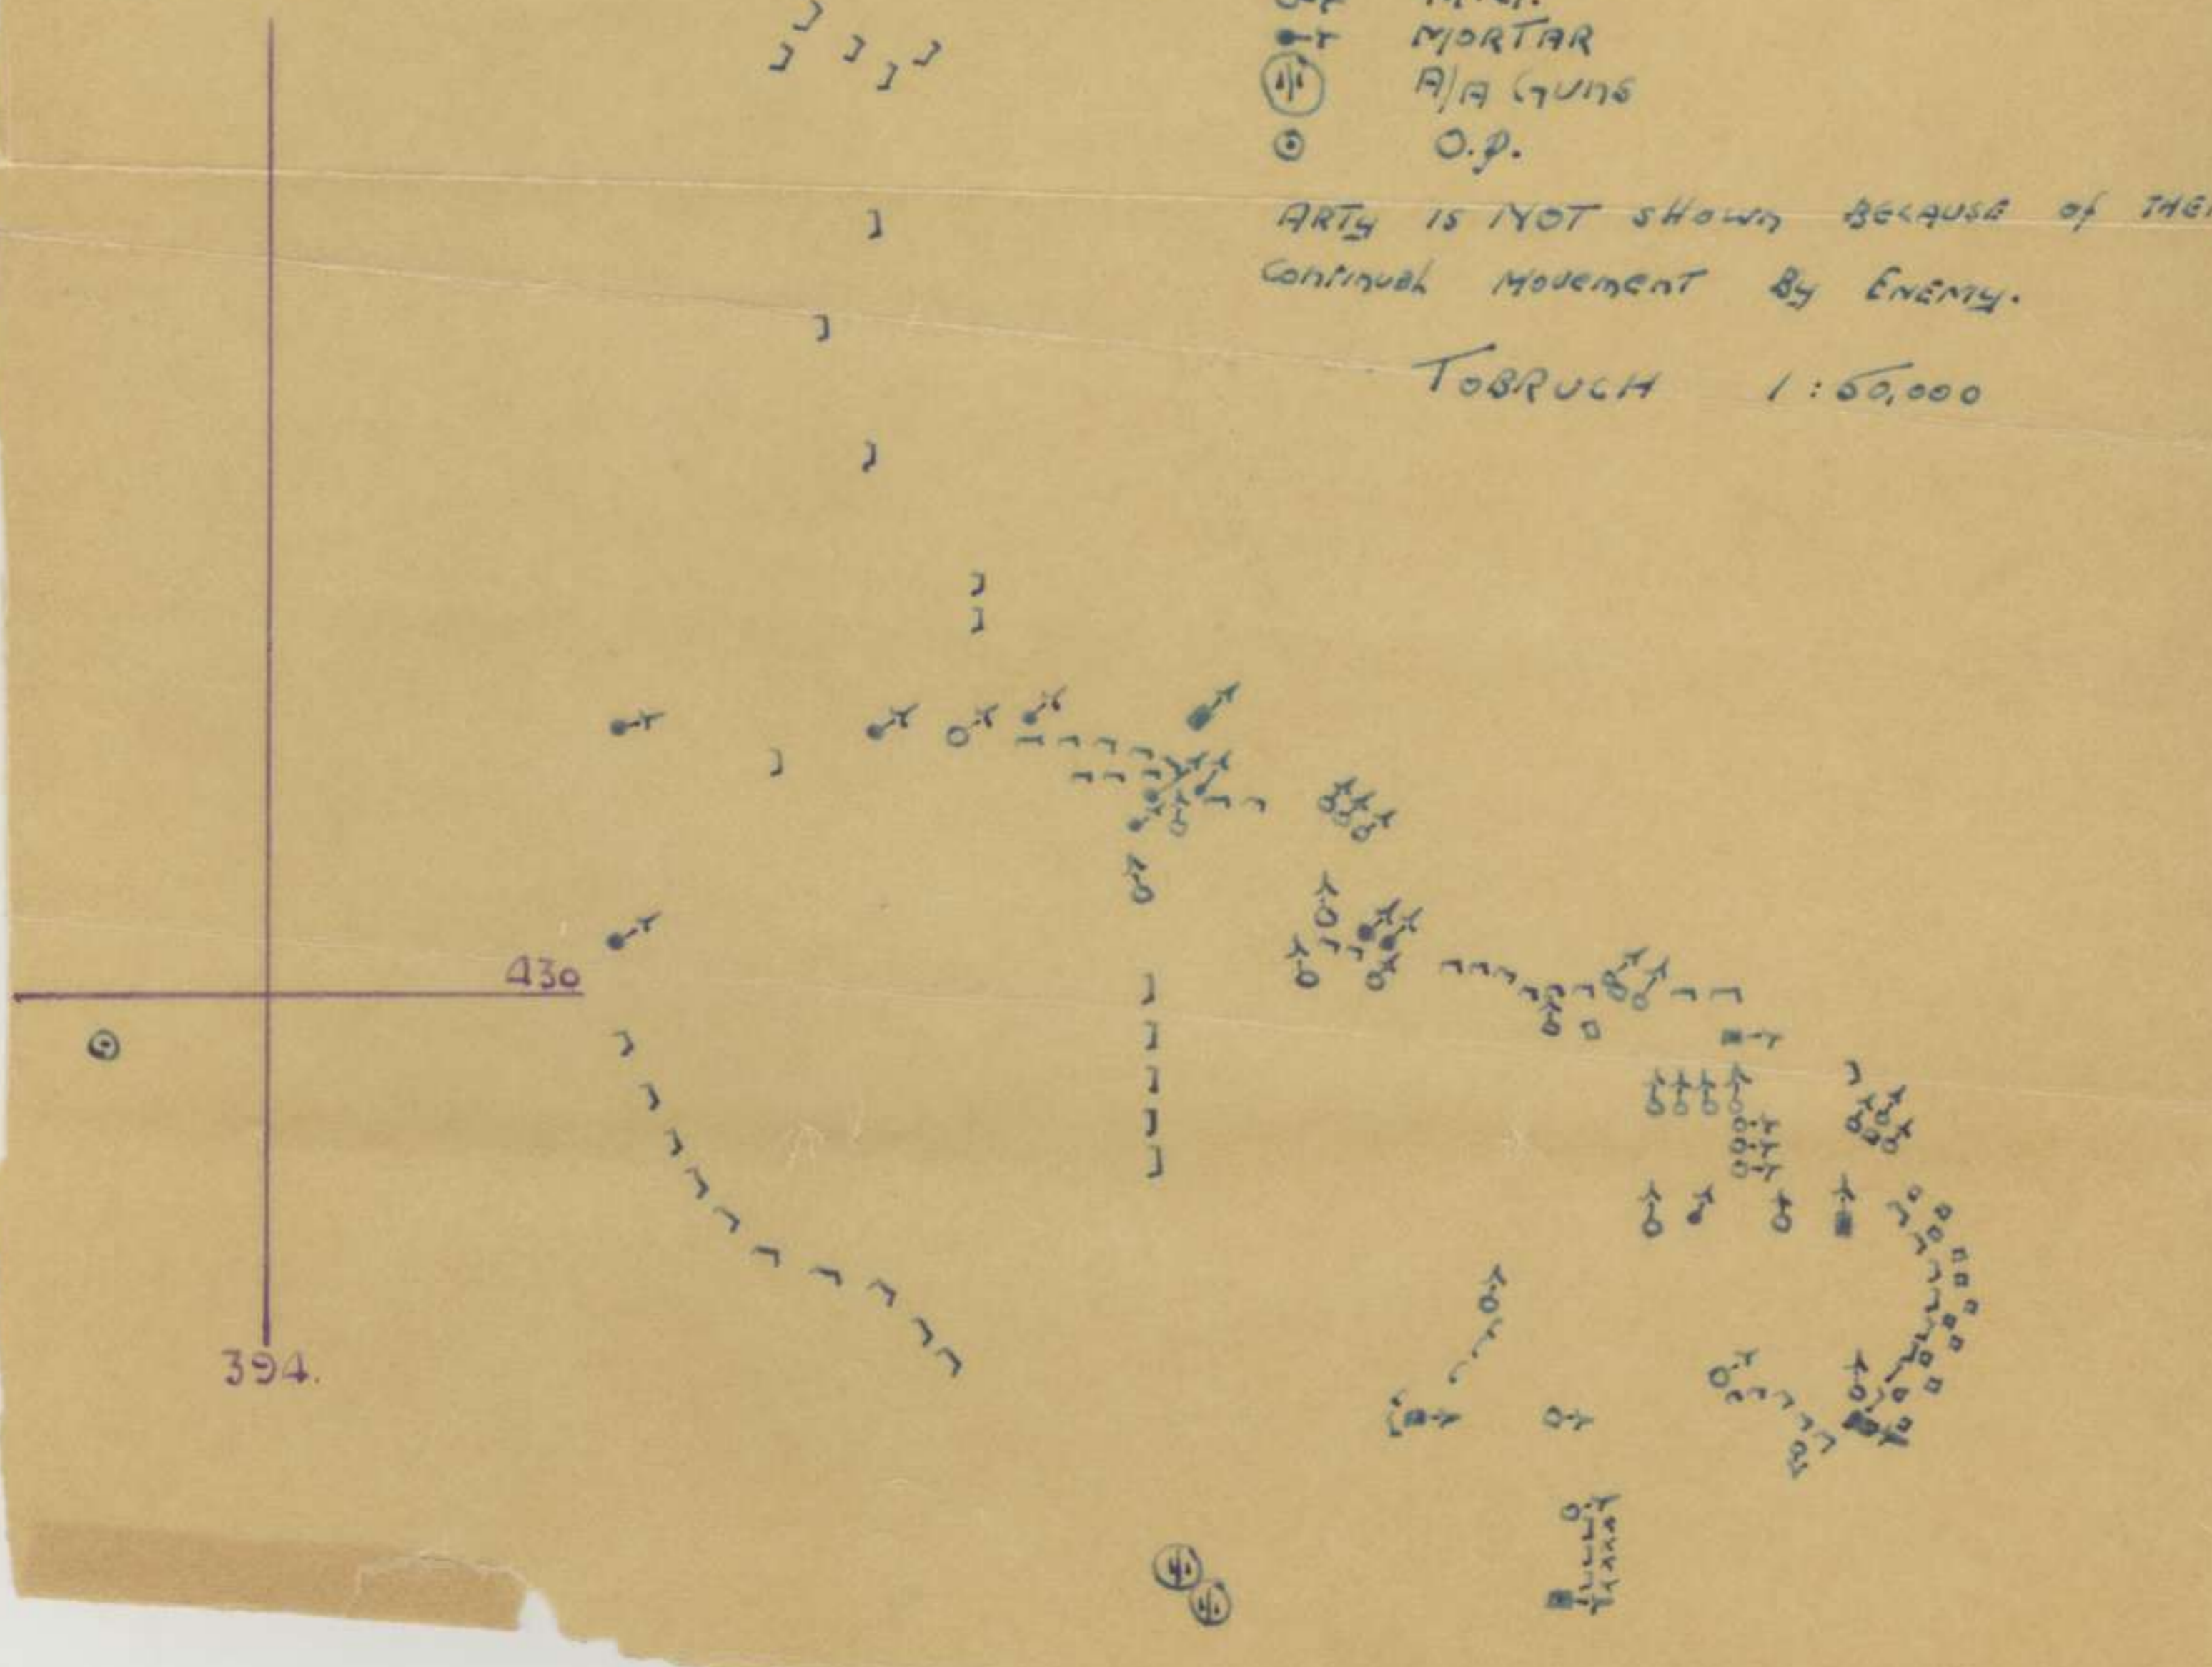 MORTAR
A/A GUNS
O.P.
ARTY IS NOT SHOWN BECAUSE of
CONTINUAL MOVEMENT BY ENEMY.
TOBRUCH 1:50,000
430
394.